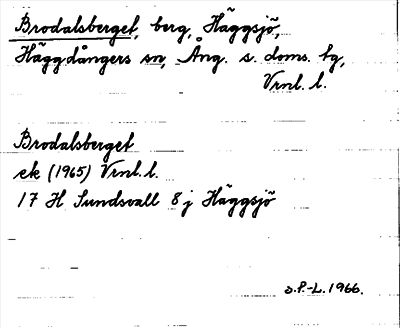 Brodalsberget, berg, Häggsjö,
Häggdångers sn, Ång. s. doms. tg,
Vrnl. l.
Brodalsberget
ek (1965) Vrnl. l.
17 H Sundsvall 8 j Häggsjö
S.P.-L. 1966.